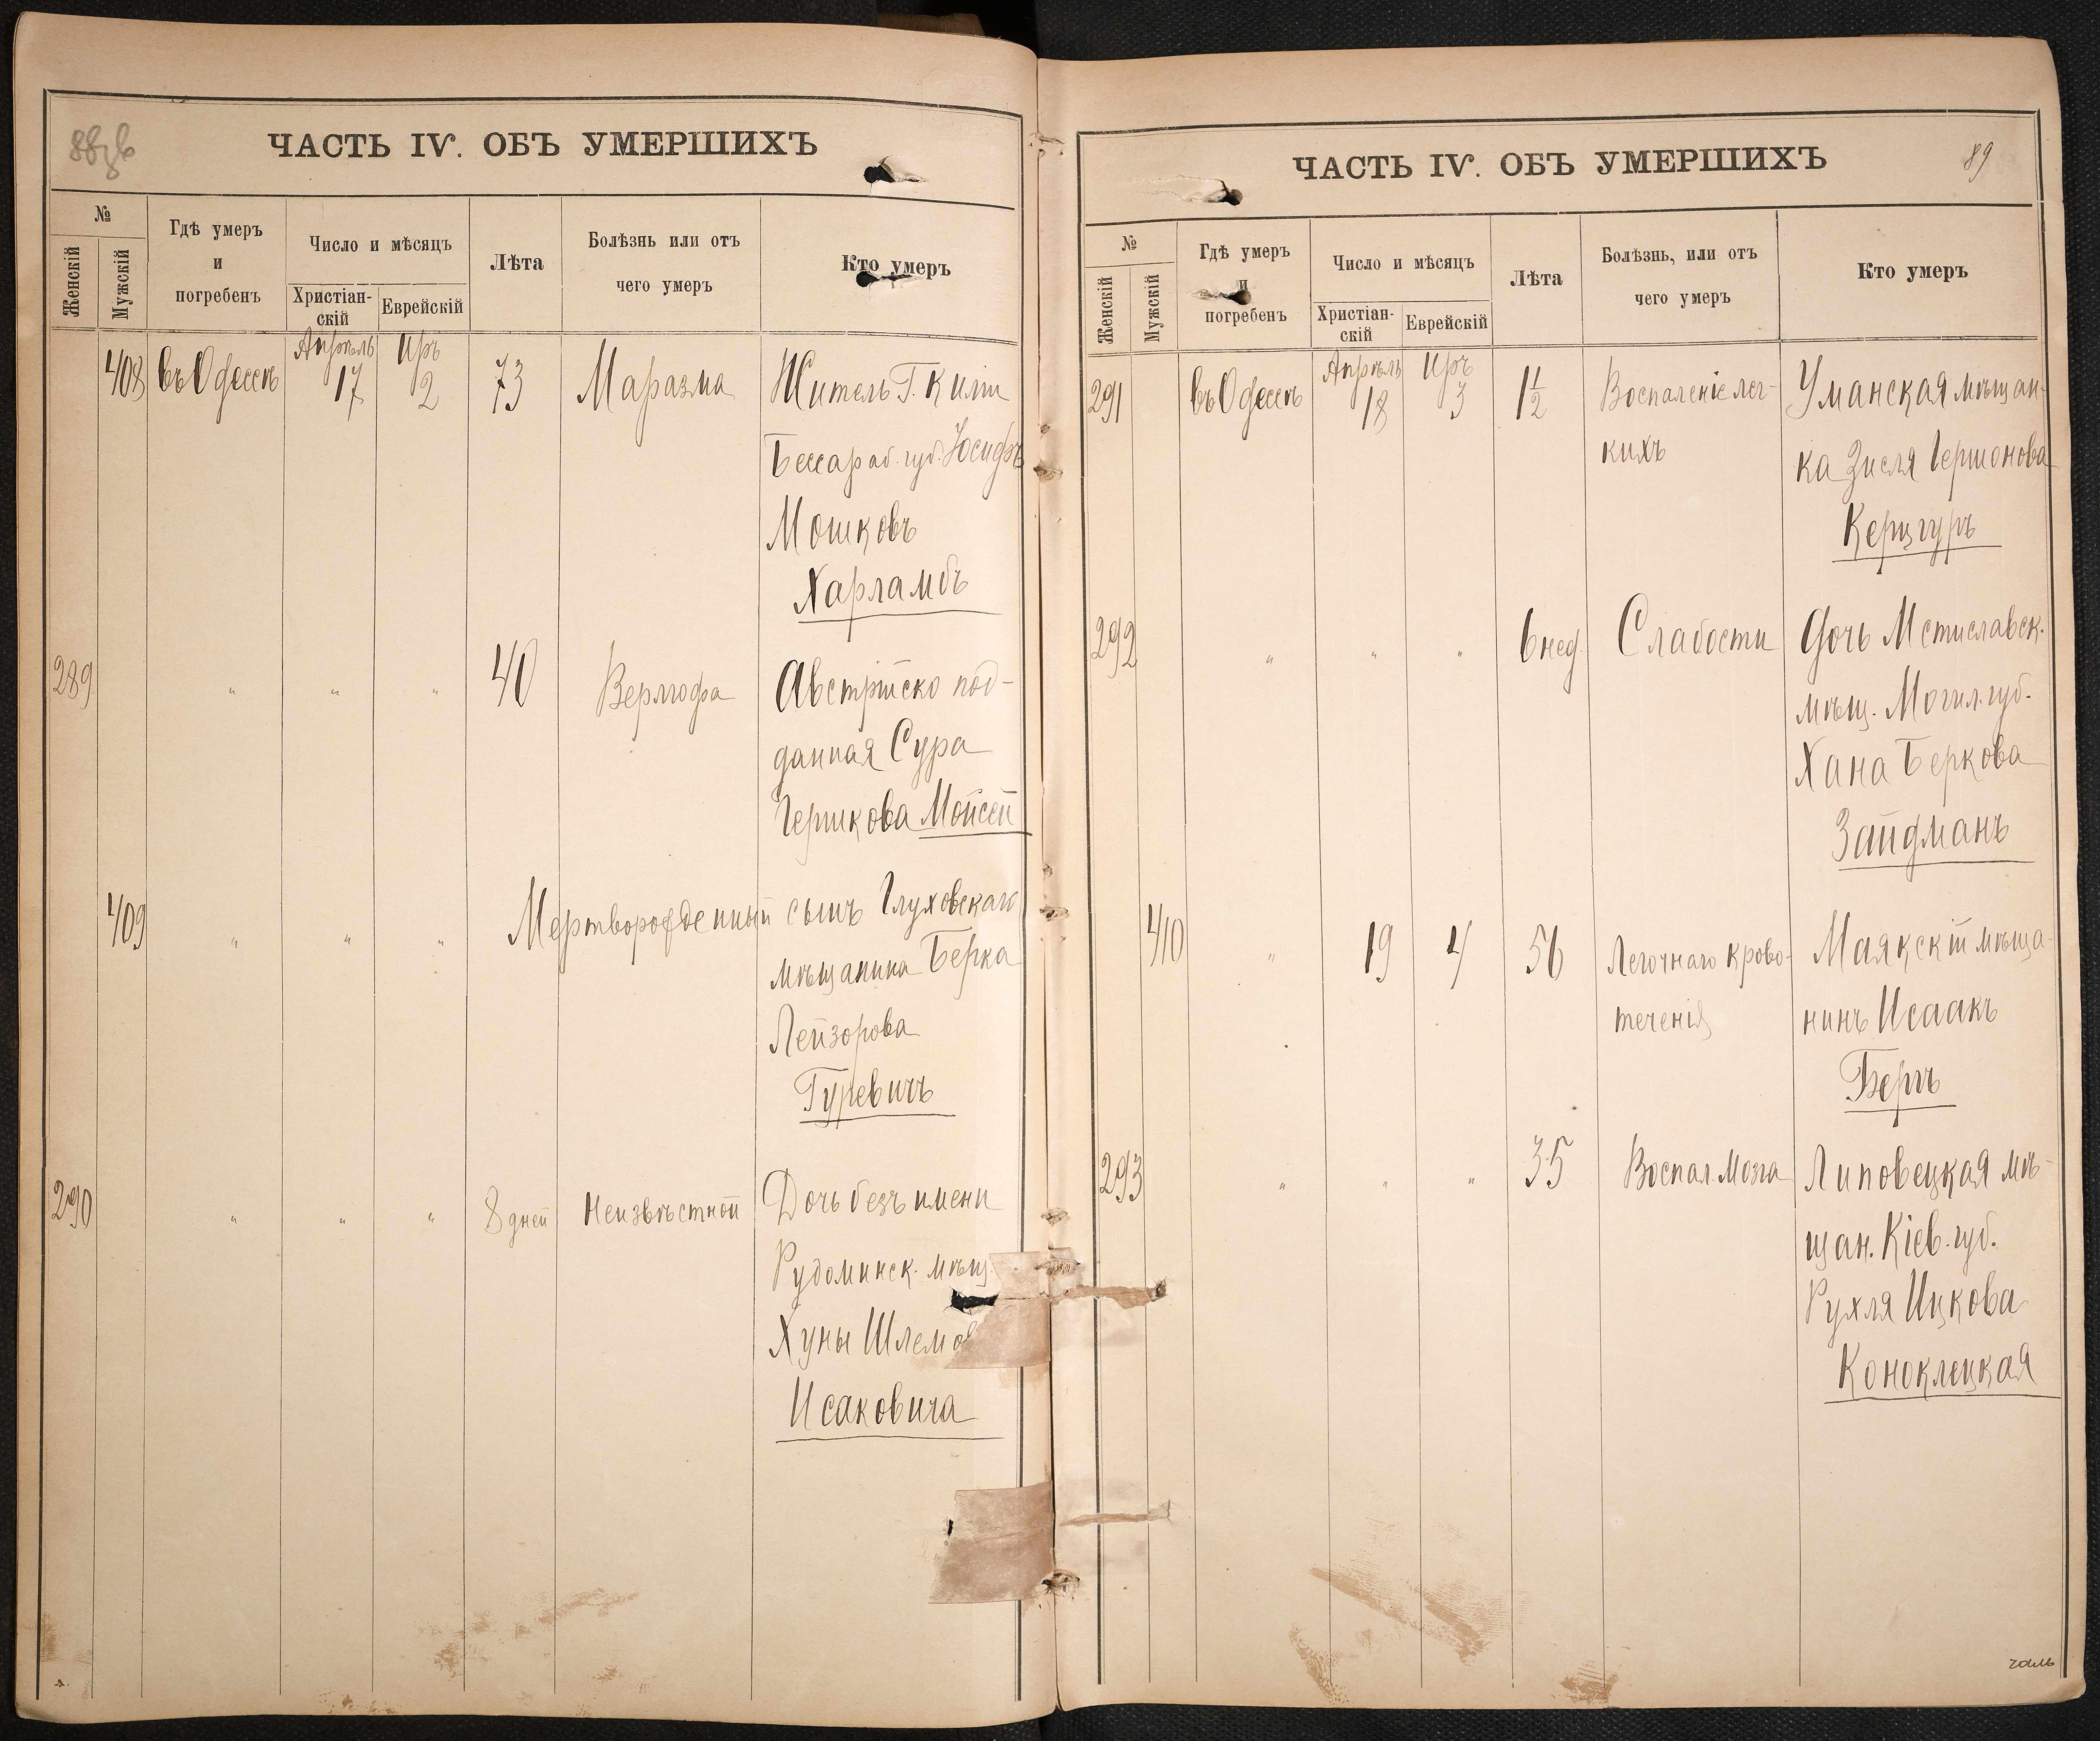 ЧАСТЬ IV. ОБЪ УМЕРШИХЪ
№
Женскій
Мужскій
Гдѣ умеръ
и
погребенъ
Число и мѣсяцъ
Христіан-
скій
Еврейскій
Лѣта
Болѣзнь или отъ
чего умеръ
Кто умеръ
Апрѣль Иръ
408 въ Одессѣ 17 2 73 Маразма Житель Г. Киліи
Бессараб. губ. Іосифъ
Мошковъ
Харламбъ
289 " " " 40 Верлгофа Австрійско под-
данная Сура
Гершкова Мойсей
409 " " " Мертворожденный сынъ Глуховскаго
мѣщанина Берка
Лейзорова
Гуревичъ
290 " " " 8 дней Неизвѣстной Дочь безъ имени
Рудоминск. мѣщ.
Хуны Шлемов
Исаковича
ЧАСТЬ IV. ОБЪ УМЕРШИХЪ
89
№
Женскій
Мужскій
Гдѣ умеръ
и
погребенъ
Число и мѣсяцъ
Христіан-
скій
Еврейскій
Лѣта
Болѣзнь, или отъ
чего умеръ
Кто умеръ
Апрѣль Иръ
291 въ Одессѣ 18 3 1½ Воспаленіе лег- Уманская мѣщан-
кихъ ка Зисля Гершонова
Керцгуръ
292 " " " 6 нед. Слабости Дочь Мстиславск.
мѣщ. Могил. губ.
Хана Беркова
Зайдманъ
410 " 19 4 56 Легочнаго крово- Маякскій мѣща-
теченія нинъ Исаакъ
Бергъ
293 " " " 35 Воспал. Мозга Липовецкая мѣ-
щан. Кіев. губ.
Рухля Ицкова
Коноклецкая